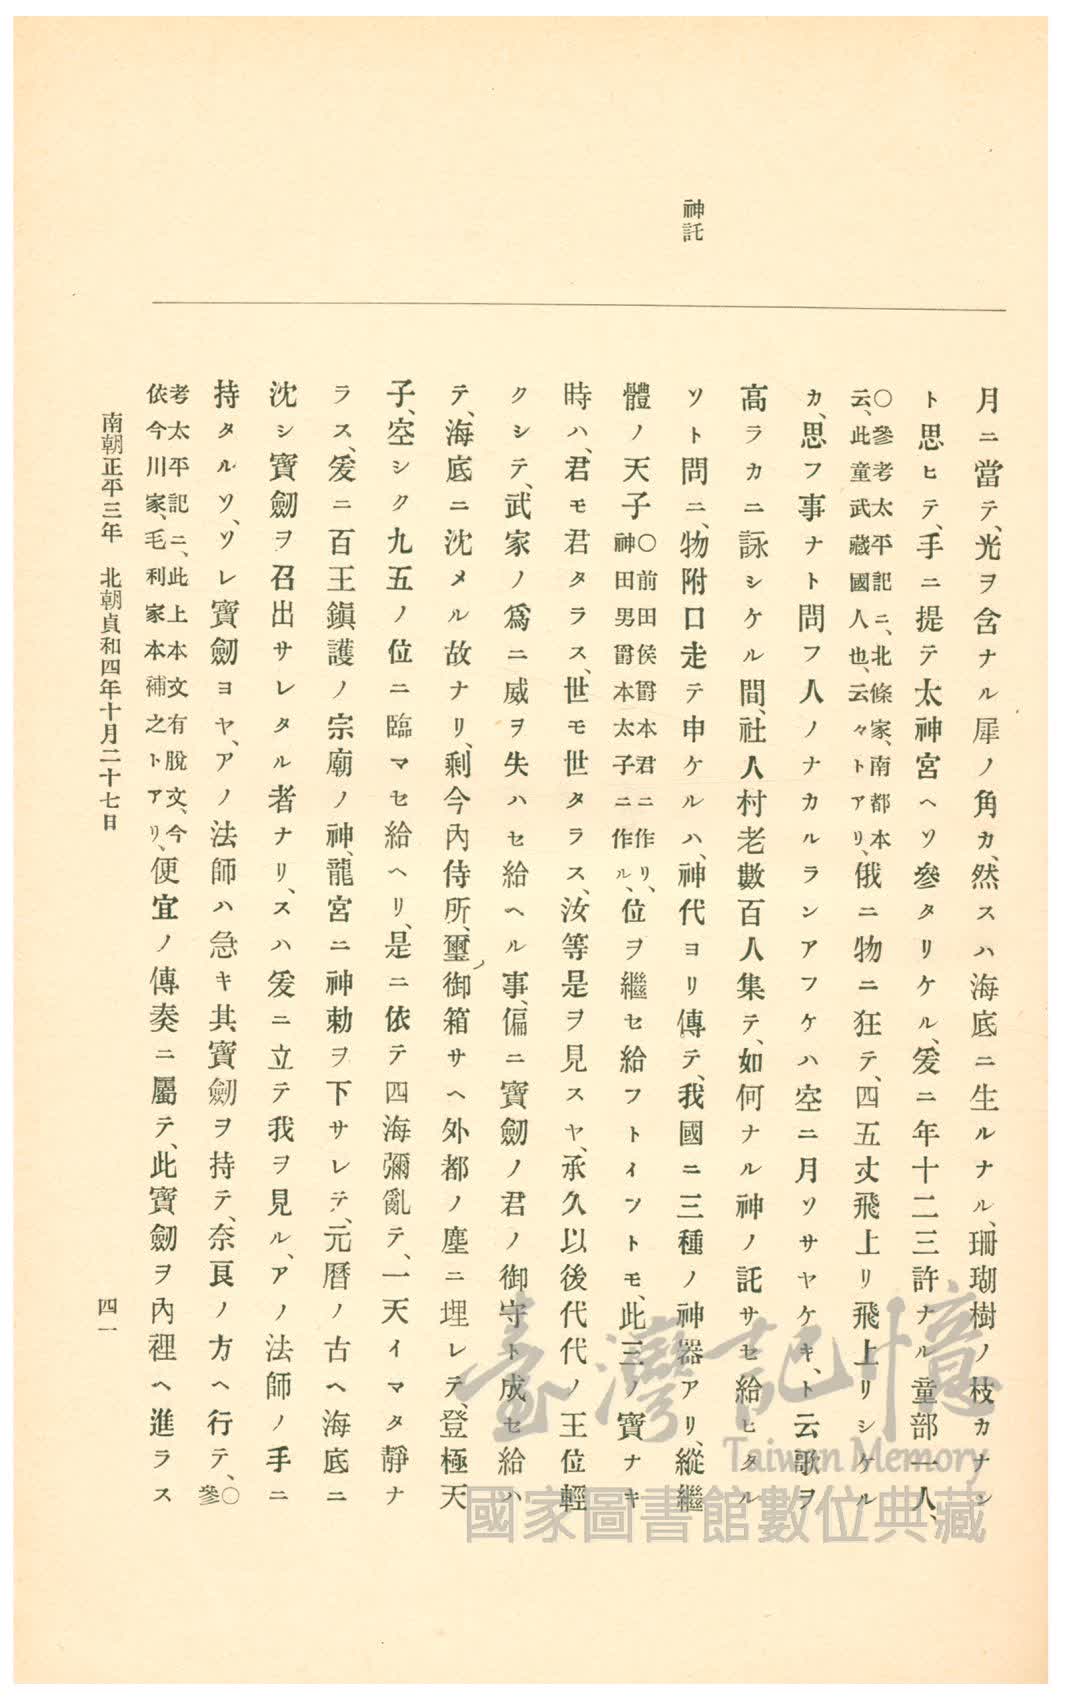 神託
月ニ當テ、光ヲ含ナル犀ノ角カ、然スハ海底ニ生ルナル、珊瑚樹ノ枝カナン
ト思ヒテ、手ニ提テ太神宮ヘソ參タリケル、爰ニ年十二三許ナル童部一人、
〇參考太平記ニ、北條家、南都本
云、此童武藏國人也、云々トアリ、
俄ニ物ニ狂テ、四五丈飛上リ飛上リシケル
カ、思フ事ナト問フ人ノナカルランアフケハ空ニ月ソサヤケキ、ト云歌ヲ
高ラカニ詠シケル間、社人村老數百人集テ、如何ナル神ノ託サセ給ヒタル
ソト問ニ、物附口走テ申ケルハ、神代ヨリ傳テ、我國ニ三種ノ神器アリ、縱繼
體ノ天子
〇前田侯爵本君ニ作リ、
神田男爵本太子ニ作ル、
位ヲ繼セ給フトイフトモ、此三ノ寶ナキ
時ハ、君モ君タラス、世モ世タラス、汝等是ヲ見スヤ、承久以後代代ノ王位輕
クシテ、武家ノ爲ニ威ヲ失ハセ給ヘル事、偏ニ寶劒ノ君ノ御守ト成セ給ハ
テ、海底ニ沈メル故ナリ、剩今內侍所、璽ノ御箱サヘ外都ノ塵ニ埋レテ、登極天
子、空シク九五ノ位ニ臨マセ給ヘリ、是ニ依テ四海彌亂テ、一天イマタ靜ナ
ラス、爰ニ百王鎭護ノ宗廟ノ神、龍宮ニ神勅ヲ下サレテ、元曆ノ古ヘ海底ニ
沈シ寶劒ヲ召出サレタル者ナリ、スハ爰ニ立テ我ヲ見ル、アノ法師ノ手ニ
持タルソ、ソレ寶劒ヨヤ、アノ法師ハ急キ其寶劒ヲ持テ、奈良ノ方ヘ行テ、
〇參
考太平記ニ、此上本文有脫文、今
依今川家、毛利家本補之トアリ、
便宜ノ傳奏ニ屬テ、此寶劒ヲ內裡ヘ進ラス
南朝正平三年 北朝貞和四年十月二十七日
四一
臺灣記憶
Taiwan Memory
國家圖書館數位典藏